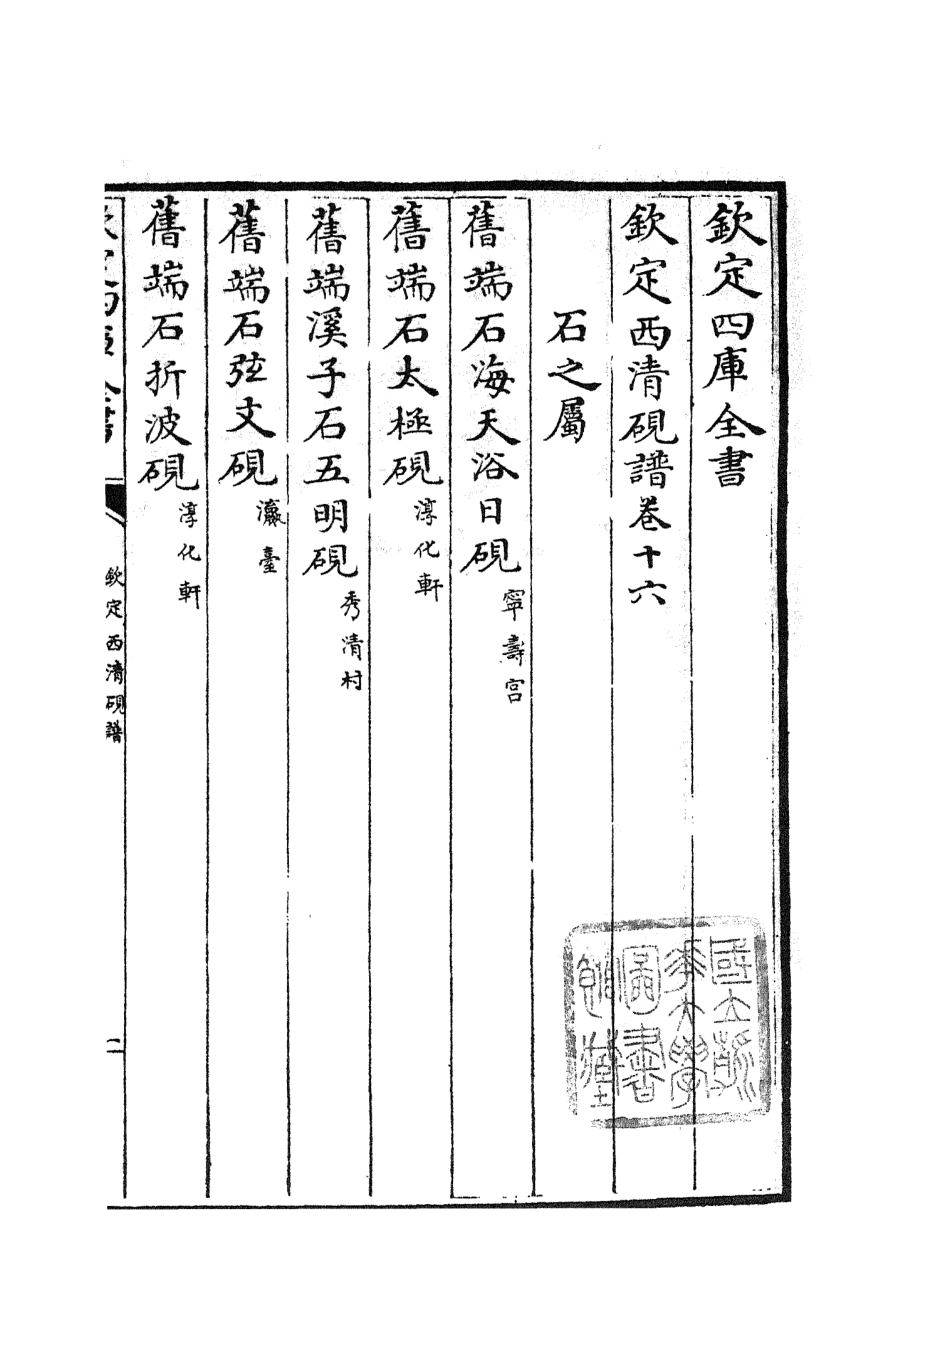 欽定四庫全書
欽定西清硯譜卷十六
石之屬
舊端石海天浴日硯 寧壽宮
舊端石太極硯 淳化軒
舊端溪子石五明硯 秀清村
舊端石弦文硯 瀛臺
舊端石折波硯 淳化軒
欽定四庫全書
欽定西清硯譜
國立浙
江大學
圖書
館藏